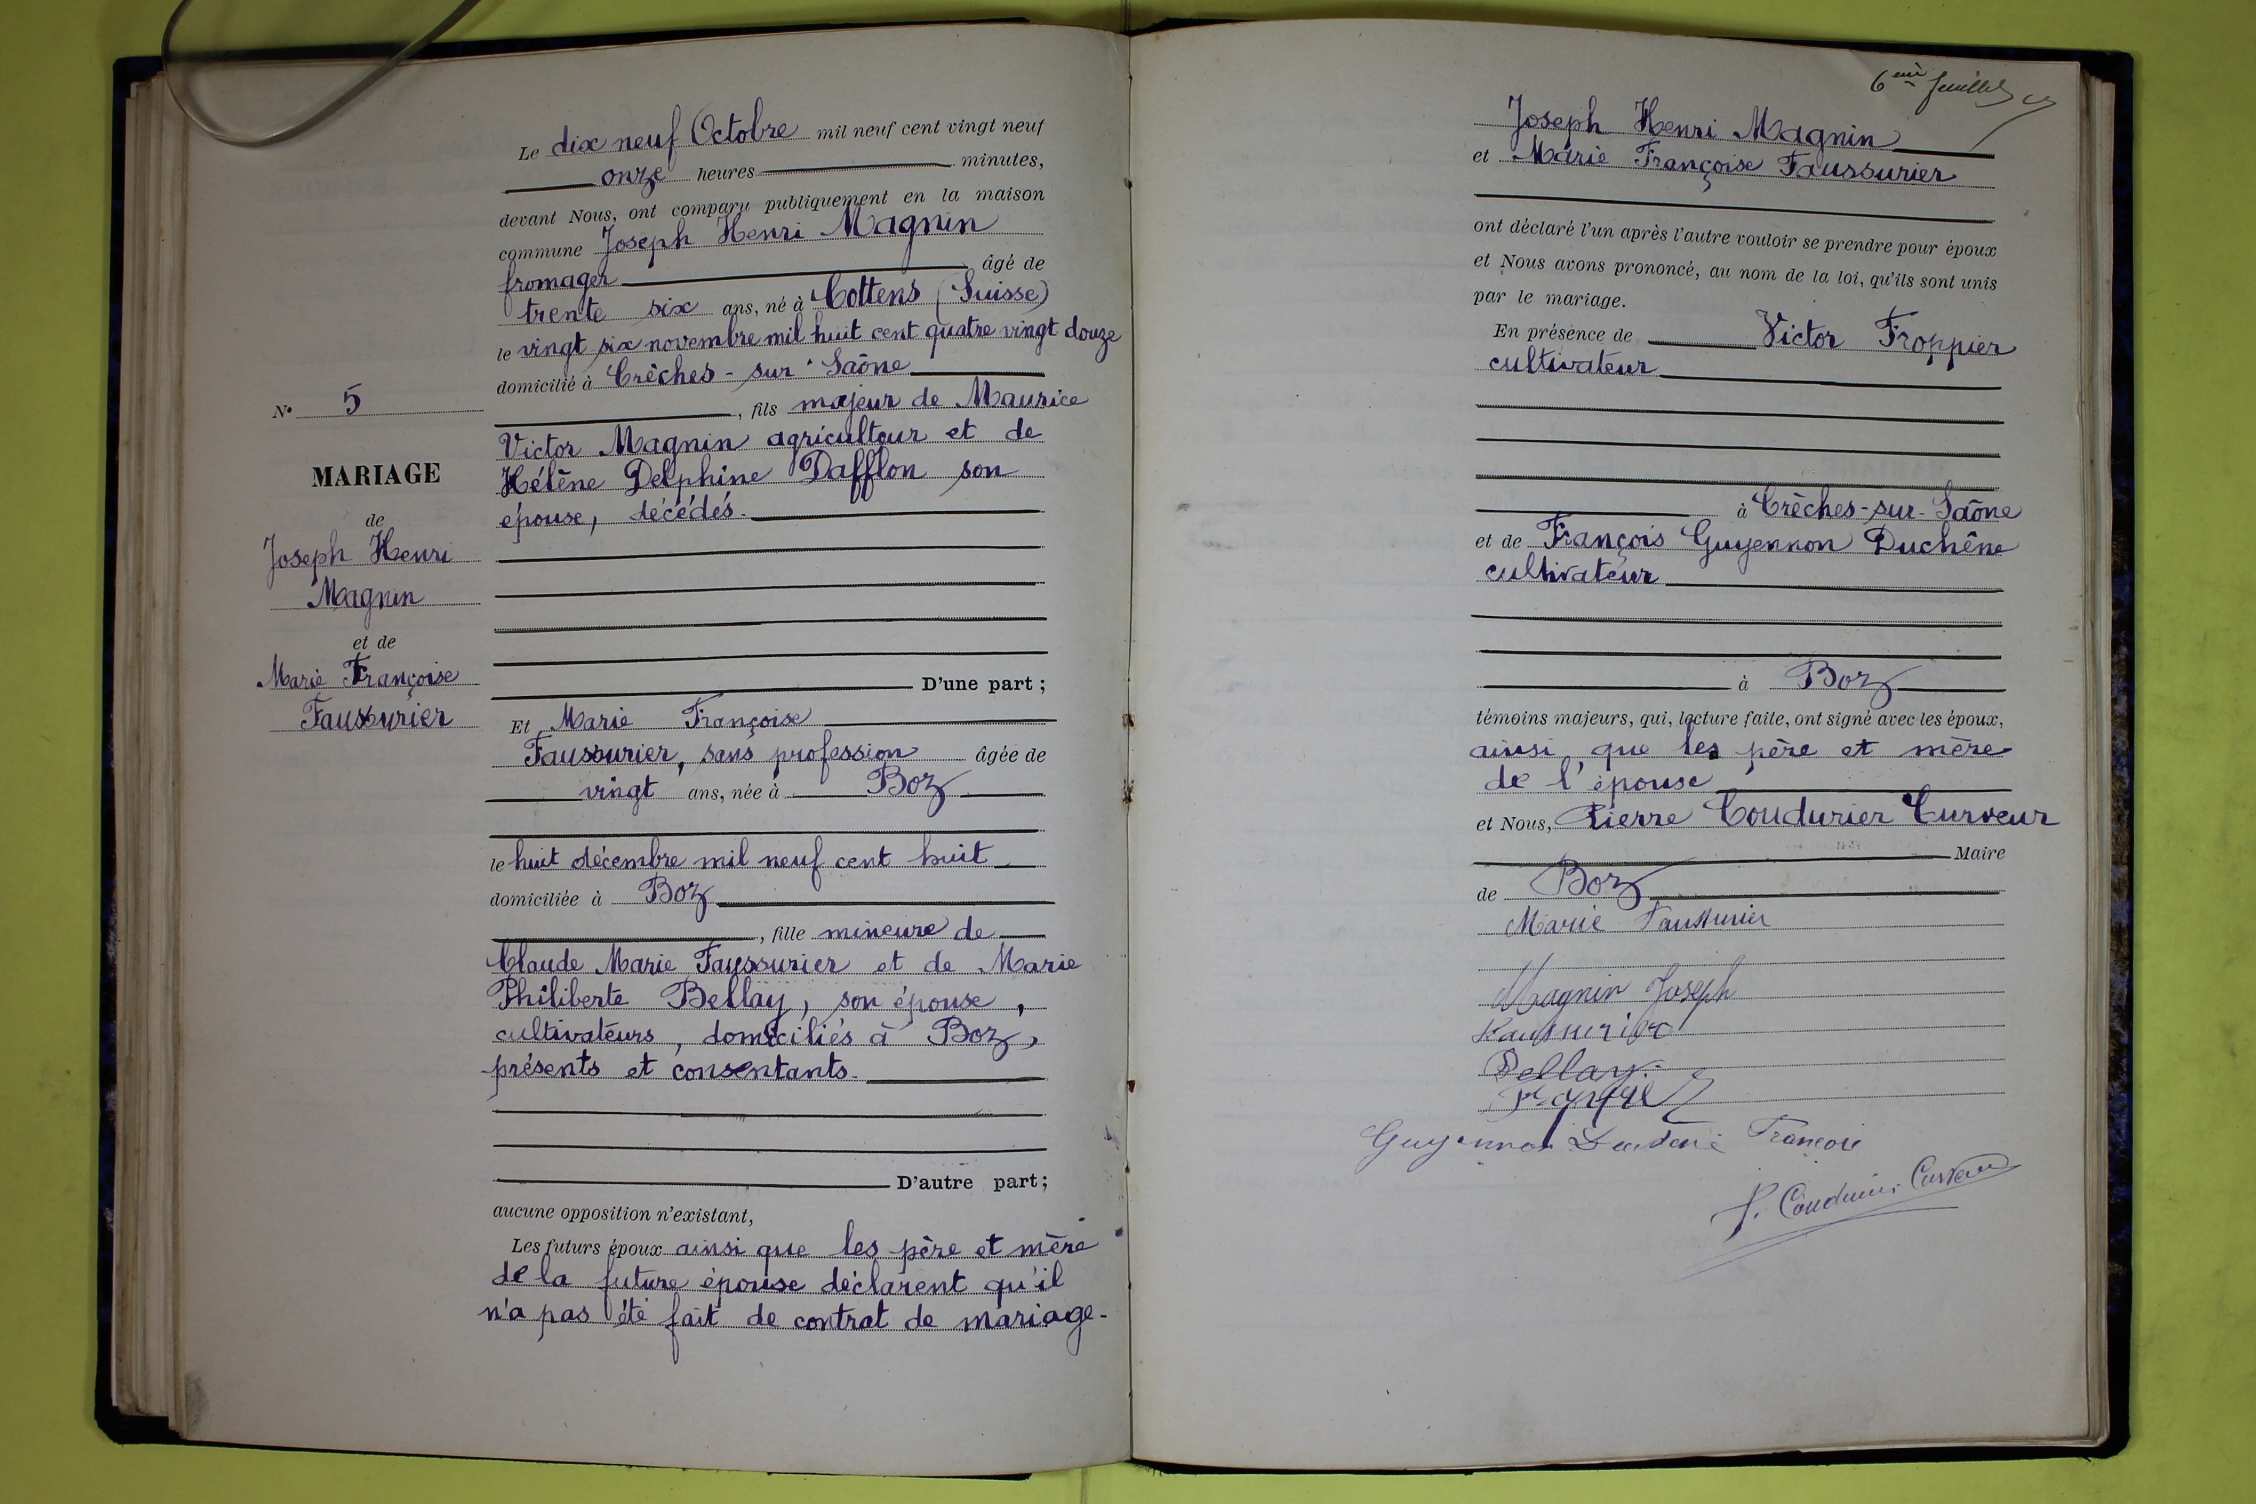 Le dix neuf Octobre mil neuf cent vingt neuf
onze heures minutes,
devant Nous, ont comparu publiquement en la maison
commune Joseph Henri Magnin
fromager âgé de
trente six ans, né à Cottens (Suisse)
le vingt six novembre mil huit cent quatre vingt douze
domicilié à Crêches-sur-Saône
, fils majeur de Maurice
Victor Magnin agriculteur et de
Hélène Delphine Dafflon son
épouse, décédés.
N° 5
MARIAGE
de
Joseph Henri
Magnin
et de
Marie Françoise
Faussurier
D'une part ;
Et Marie Françoise
Faussurier, sans profession âgée de
vingt ans, née à Boz
le huit décembre mil neuf cent huit
domiciliée à Boz
, fille mineure de
Claude Marie Faussurier et de Marie
Philiberte Bellay, son épouse,
cultivateurs, domiciliés à Boz,
présents et consentants.
D'autre part ;
aucune opposition n'existant,
Les futurs époux ainsi que les père et mère
de la future épouse déclarent qu'il
n'a pas été fait de contrat de mariage.
6ème feuillet
Joseph Henri Magnin
et Marie Françoise Faussurier
ont déclaré l'un après l'autre vouloir se prendre pour époux
et Nous avons prononcé, au nom de la loi, qu'ils sont unis
par le mariage.
En présence de Victor Froppier
cultivateur
à Crêches-sur-Saône
et de François Guyennon Duchêne
cultivateur
à Boz
témoins majeurs, qui, lecture faite, ont signé avec les époux,
ainsi que les père et mère
de l'épouse
et Nous, Pierre Coudurier Curveur
Maire
de Boz
Marie Faussurier
Magnin Joseph
Faussurier
Bellay
Guyennon François
P. Coudurier Curveur